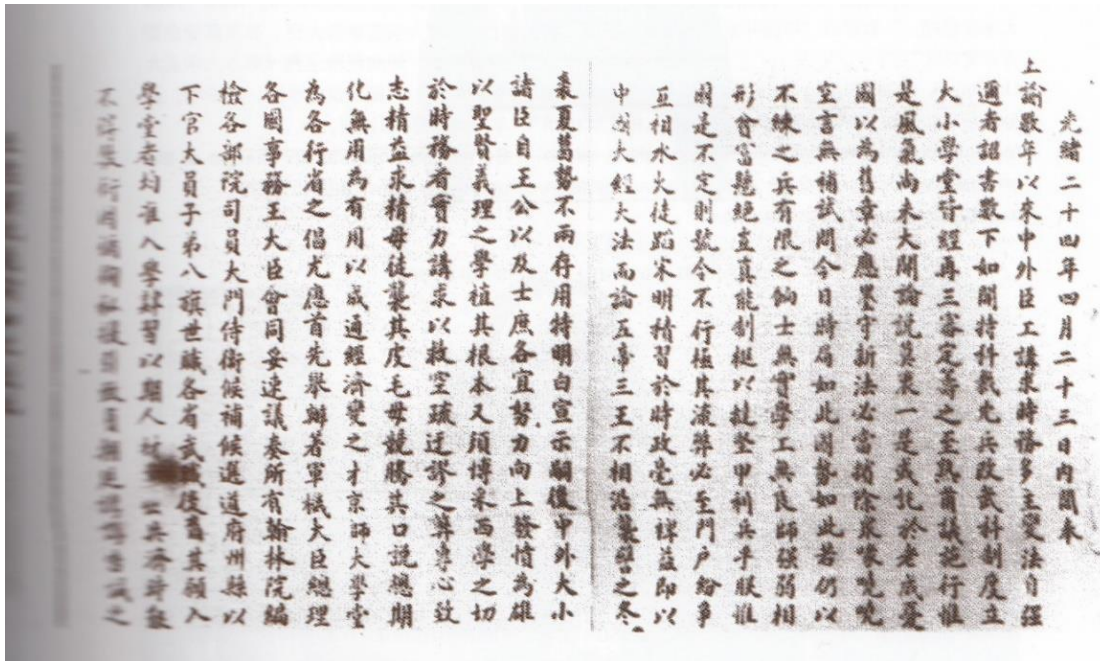 光緒二十四年四月二十三日內閣奉
上諭數年以來中外臣工講求時務多主變法自強
邇者詔書數下如開特科裁冗兵改武科制度立
大小學堂皆經再三審定籌之至熟甫議施行惟
是風氣尚未大開論說莫衷一是或託於老成憂
國以為舊章必應墨守新法必當擯除眾喙嘵嘵
空言無補試問今日時局如此國勢如此若仍以
不練之兵有限之餉士無實學工無良師强弱相
形貧富懸絕豈真能制梃以撻堅甲利兵乎朕惟
國是不定則號令不行極其流弊必至門戶紛爭
互相水火徒蹈宋明積習於時政毫無裨益即以
中國大經大法而論五帝三王不相沿襲譬之冬
裘夏葛勢不兩存用特明白宣示嗣後中外大小
諸臣自王公以及士庶各宜努力向上發憤為雄
以聖賢義理之學植其根本又須博采西學之切
於時務者實力講求以救空疏迂謬之弊專心致
志精益求精毋徒襲其皮毛毋競騰其口說總期
化無用為有用以成通經濟變之才京師大學堂
為各行省之倡尤應首先舉辦著軍機大臣總理
各國事務王大臣會同妥速議奏所有翰林院編
檢各部院司員大門侍衛候補候選道府州縣以
下官大員子弟八旗世職各省武職後裔其願入
學堂者均准入學肄習以期人材 出共濟時艱
不得敷衍因循徇私援引致負朝廷諄諄告誡之